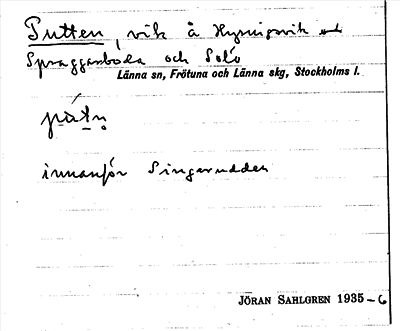 Putten, vik å Hysingsvik
Spraggarboda och Solö
Länna sn, Frötuna och Länna skg, Stockholms l.
innanför Singarudden
JÖRAN SAHLGREN 1935-6